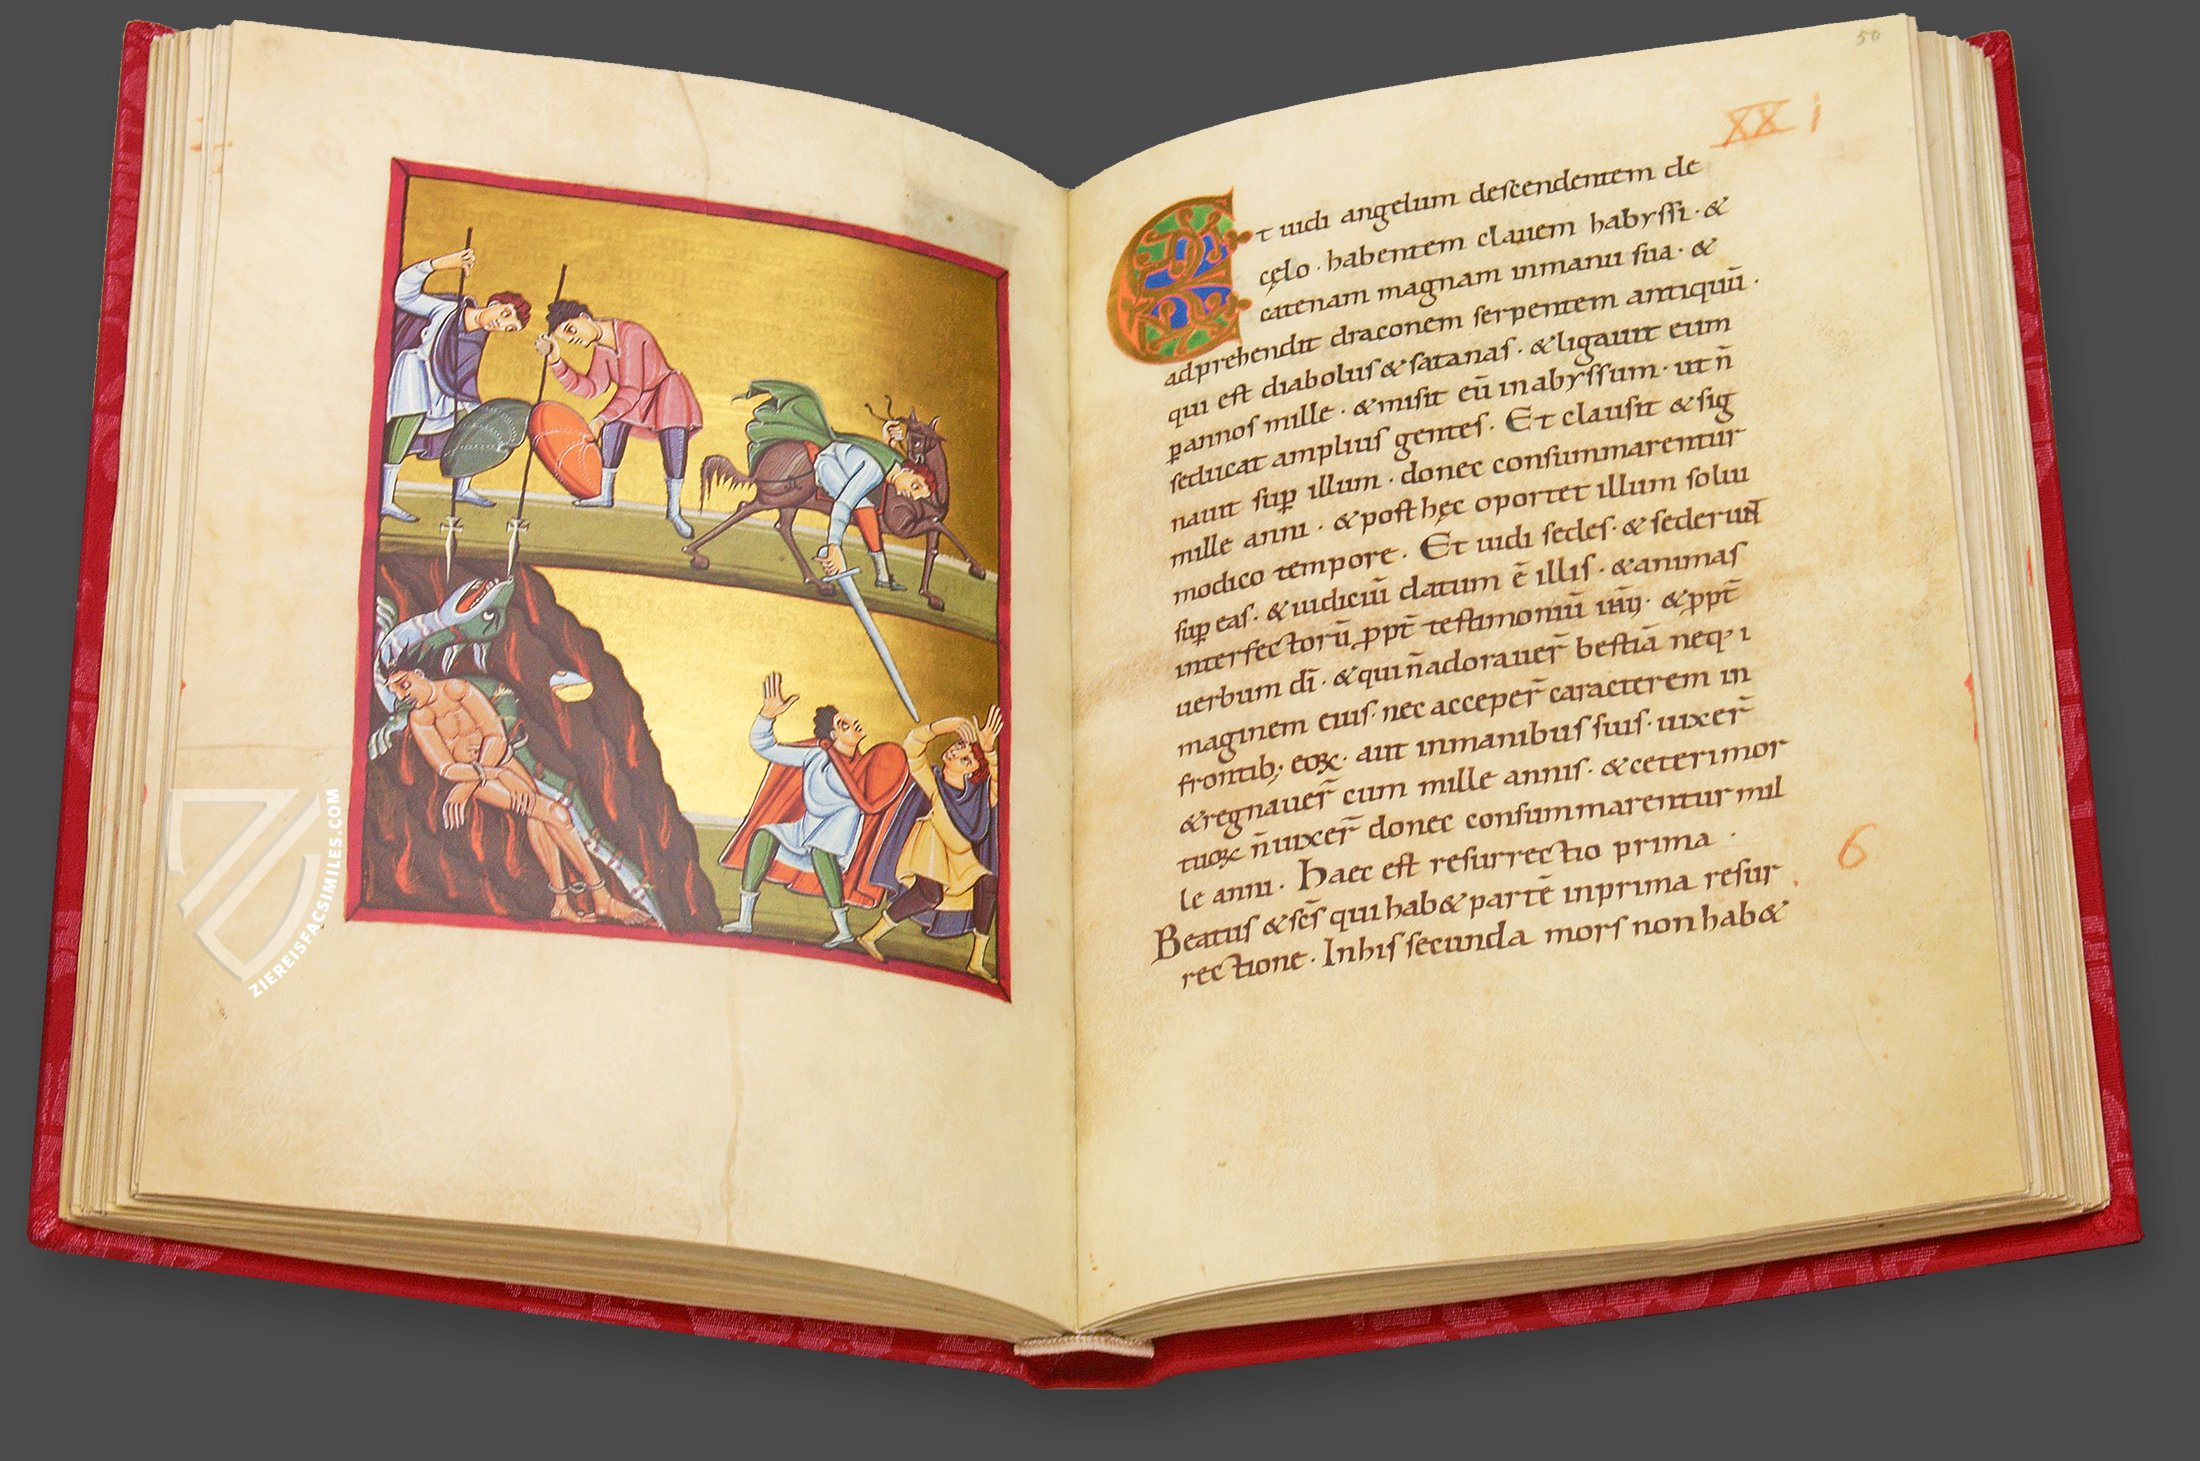 ZIEREISFACSIMILES.COM
50
XXI
Et uidi angelum descendentem de
cęlo · habentem clauem habyssi · &
catenam magnam inmanu sua · &
adprehendit draconem serpentem antiquū ·
qui est diabolus & satanas · & ligauit eum
p̲annos mille · & misit eū inabyssum · ut n̄
seducat amplius gentes · Et clausit & sig
nauit sup̲ illum · donec consummarentur
mille anni · & post hęc oportet illum solui
modico tempore · Et uidi sedes · & sederunt
sup̲ eas · & iudiciū datum ē illis · & animas
interfectorū ppt̄ testimoniū ihu · & ppt̄
uerbum dī · & qui n̄ adorauer̄ bestiā neq· i
maginem eius · nec acceper̄ caracterem in
frontib; eoꝝ · aut inmanibus suis · uixer̄
& regnauer̄ cum mille annis · & ceteri mor
tuoꝝ n̄ uixer̄ donec consummarentur mil
le anni · Haec est resurrectio prima ·
Beatus & scs̄ qui hab& partē inprima resur
rectione · Inhis secunda mors non hab&
6